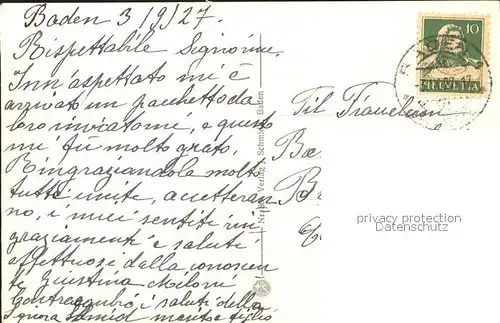 Baden 3/9/27.
Rispettabile Signorine.
Inn'aspettato mi è
arrivato un pacchetto da
loro inviatomi, e questo
mi fu molto grato,
Ringraziandola molto
tutte unite, accetteran
no, i miei sentiti rin
graziamenti e saluti
affettuosi della conoscen
te Giustina Meloni
Contraccambio i saluti della
Signora Schmid marito e figlio
Verlag Schmid, Baden
10
HELVETIA
Til Fräulein
privacy protection
Datenschutz